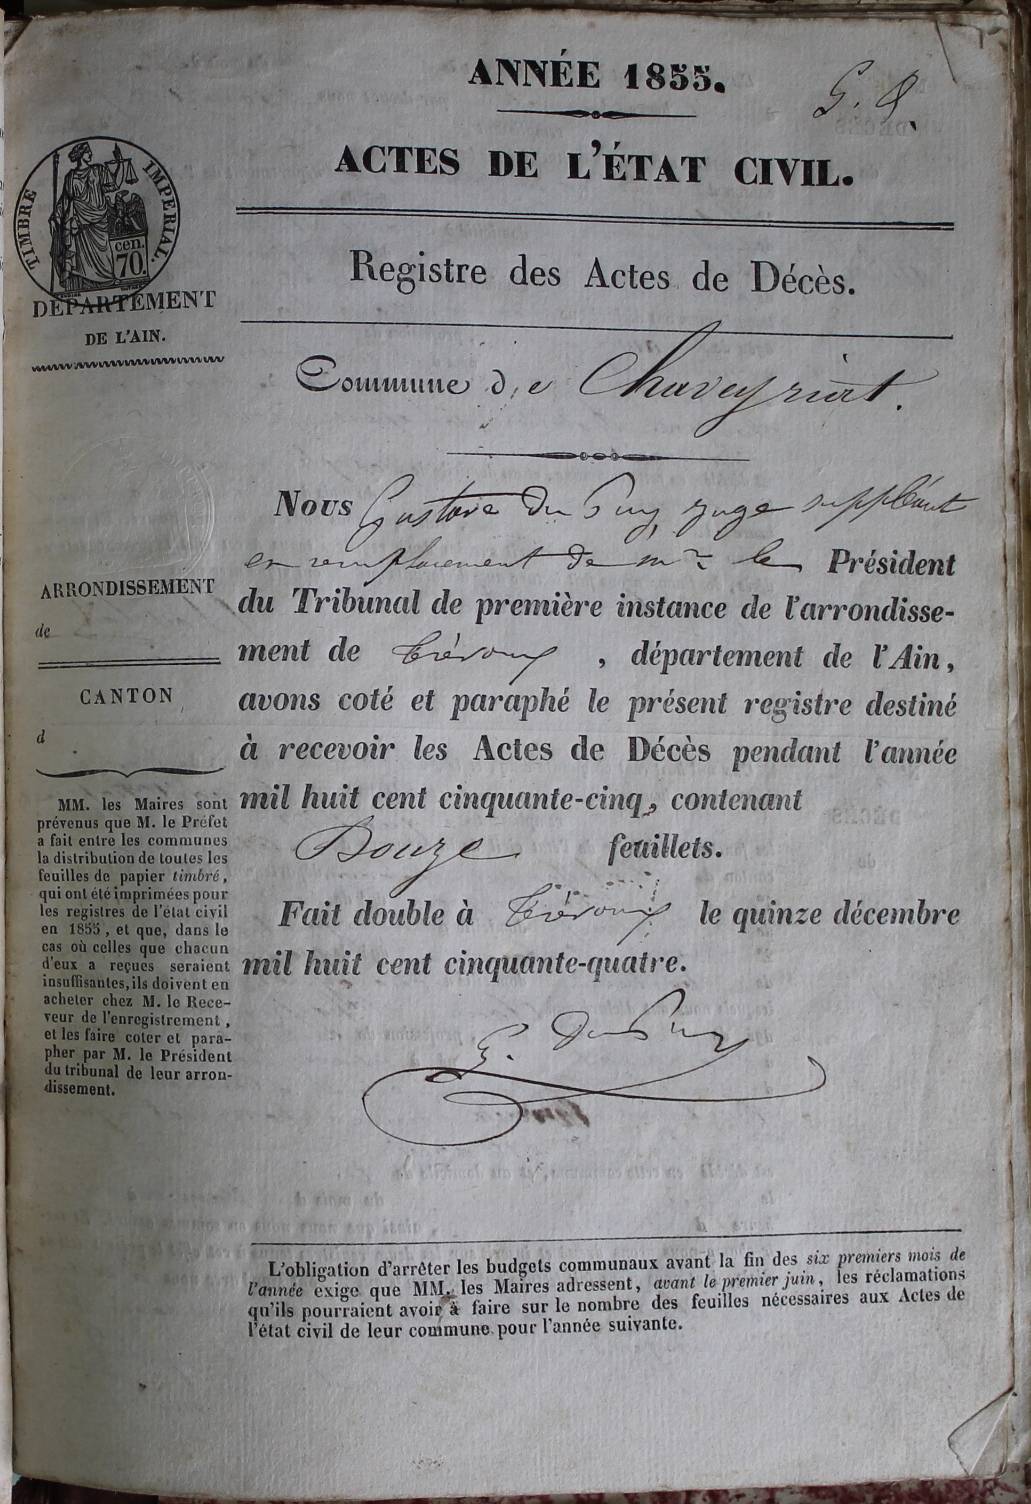 ANNÉE 1855.
ACTES DE L'ÉTAT CIVIL.
TIMBRE IMPERIAL.
cen.
70.
DÉPARTEMENT
DE L'AIN.
Registre des Actes de Décès.
Commune de Chaveyriat.
Nous Gustave Du Puy, juge suppléant
en remplacement de Mr le Président
du Tribunal de première instance de l'arrondisse-
ment de Trévoux, département de l'Ain,
avons coté et paraphé le présent registre destiné
à recevoir les Actes de Décès pendant l'année
mil huit cent cinquante-cinq, contenant
Douze feuillets.
Fait double à Trévoux le quinze décembre
mil huit cent cinquante-quatre.
G. Du Puy
ARRONDISSEMENT
de
CANTON
d
MM. les Maires sont
prévenus que M. le Préfet
a fait entre les communes
la distribution de toutes les
feuilles de papier timbré,
qui ont été imprimées pour
les registres de l'état civil
en 1855, et que, dans le
cas où celles que chacun
d'eux a reçues seraient
insuffisantes, ils doivent en
acheter chez M. le Rece-
veur de l'enregistrement,
et les faire coter et para-
pher par M. le Président
du tribunal de leur arron-
dissement.
L'obligation d'arrêter les budgets communaux avant la fin des six premiers mois de
l'année exige que MM. les Maires adressent, avant le premier juin, les réclamations
qu'ils pourraient avoir à faire sur le nombre des feuilles nécessaires aux Actes de
l'état civil de leur commune pour l'année suivante.